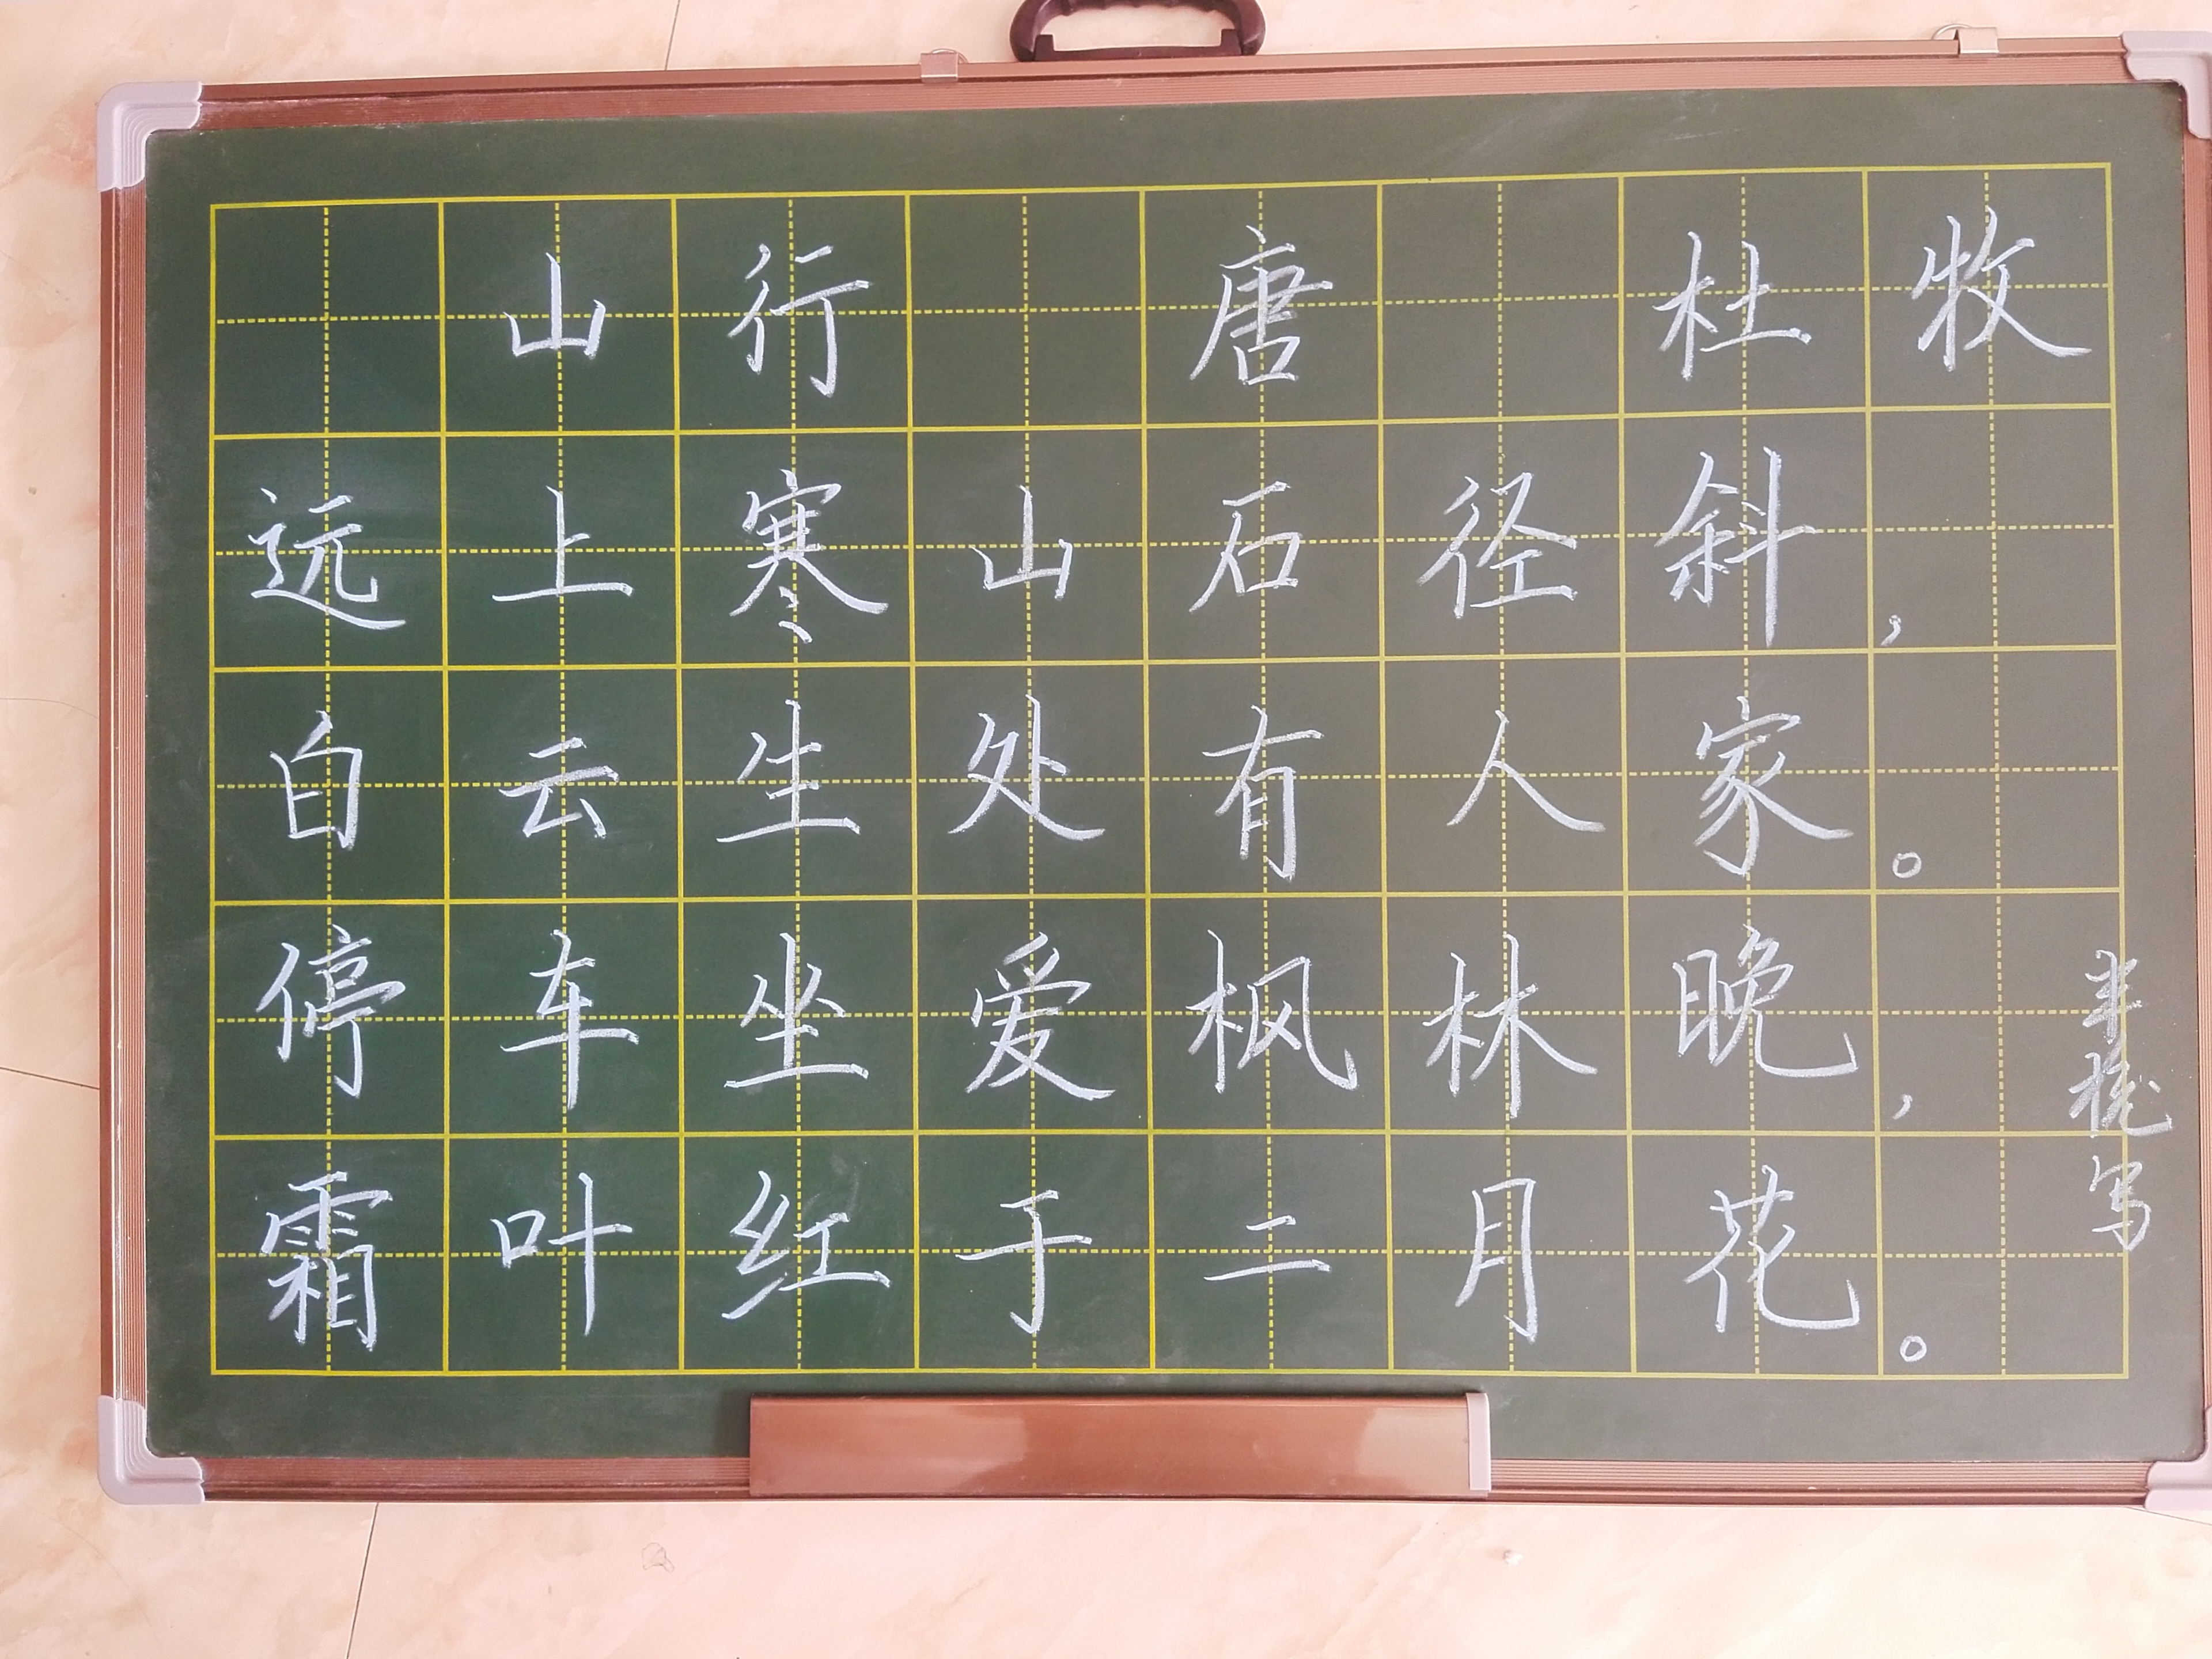 山行 唐 杜牧
远上寒山石径斜，
白云生处有人家。
停车坐爱枫林晚，
霜叶红于二月花。